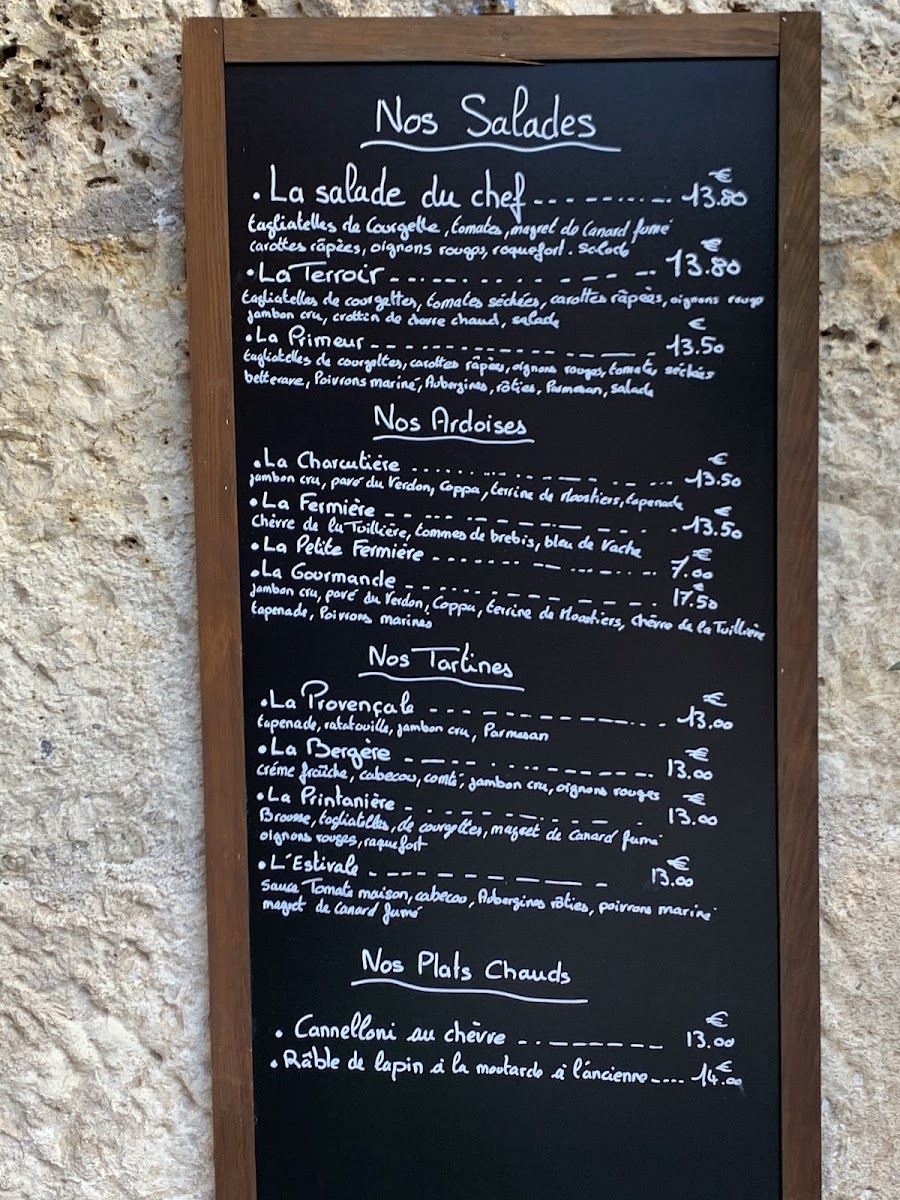 Nos Salades
• La salade du chef --------- 13.80 €
tagliatelles de Courgette, tomates, magret de Canard fumé
carottes râpées, oignons rouges, roquefort. Salade
• La Terroir ----------- 13.80 €
tagliatelles de courgettes, tomates séchées, carottes râpées, oignons rouge
jambon cru, crottin de chèvre chaud, salade
• La Primeur ------------- 13.50 €
tagliatelles de courgettes, carottes râpées, oignons rouges, tomates séchées
betterave, Poivrons mariné, Aubergines, rôties, Parmesan, salade
Nos Ardoises
• La Charcutière ------------ 13.50 €
jambon cru, pavé du Verdon, Coppa, terrine de Moustiers, tapenade
• La Fermière ------------ 13.50 €
Chèvre de la Tuillière, tommes de brebis, bleu de Vache
• La Petite Fermière ---------- 7.00 €
• La Gourmande ----------- 17.50 €
jambon cru, pavé du Verdon, Coppa, terrine de Moustiers, Chèvre de la Tuillière
tapenade, Poivrons marines
Nos Tartines
• La Provençale ------------ 13.00 €
tapenade, ratatouille, jambon cru, Parmesan
• La Bergère ------------ 13.00 €
créme fraîche, cabecou, comté, jambon cru, oignons rouges
• La Printanière ----------- 13.00 €
Brousse, tagliatelles, de courgettes, magret de Canard fumé
oignons rouges, roquefort
• L'Estivale ---------- 13.00 €
Sauce Tomate maison, cabecou, Aubergines rôties, poivrons mariné
magret de Canard fumé
Nos Plats Chauds
• Cannelloni au chèvre -------- 13.00 €
• Râble de lapin à la moutarde à l'ancienne ---- 14.00 €